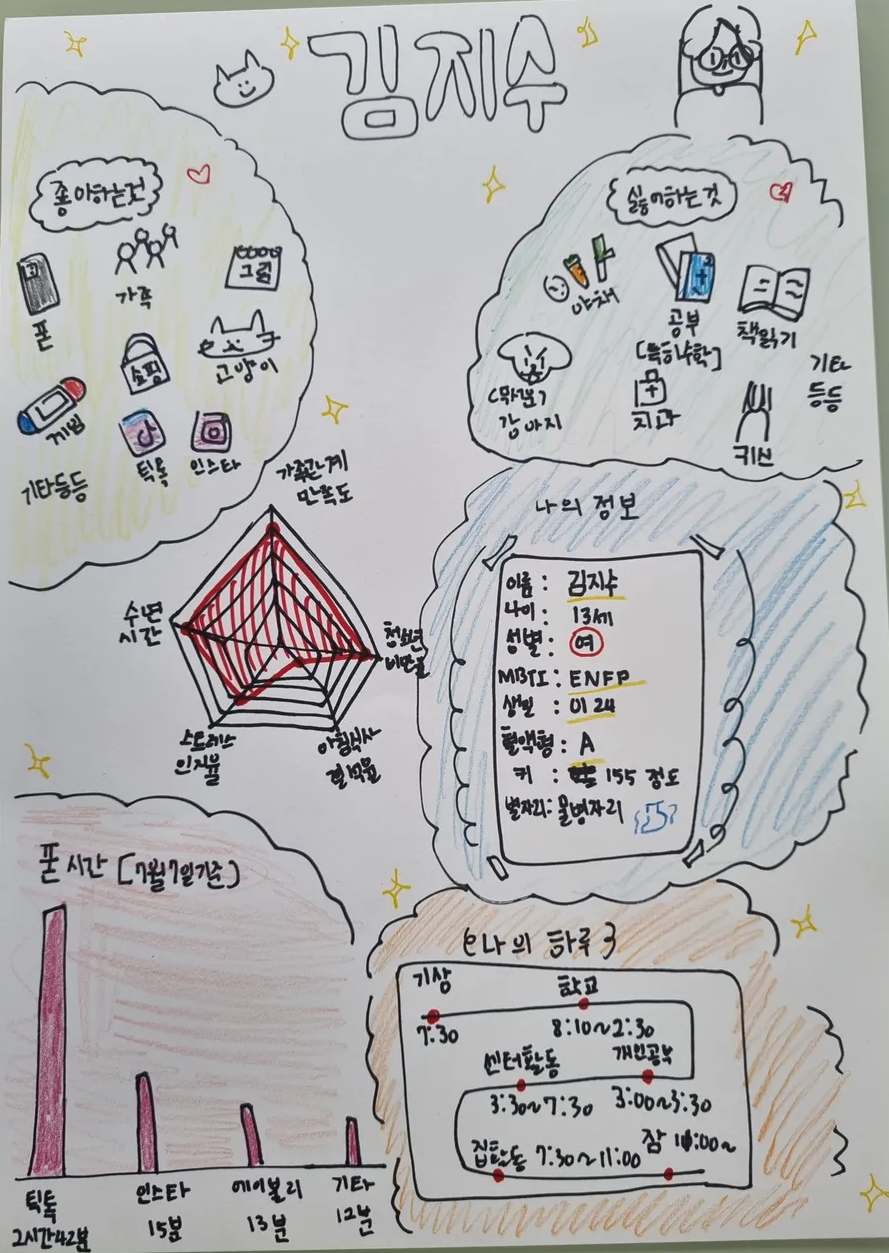 김지수
좋아하는것
폰
가족
그림
게임
쇼핑
고양이
틱톡
인스타
기타등등
싫어하는것
야채
공부
[특히수학]
책읽기
강아지
치과
키신
기타
등등
가족관계
만족도
수면
시간
청소년
비만율
스트레스
인지율
아침식사
결식율
나의 정보
이름 : 김지수
나이 : 13세
성별 : 여
MBTI : ENFP
생일 : 01 24
혈액형 : A
키 : 155 정도
별자리: 물병자리
폰 시간 [7월7일기준]
틱톡
2시간42분
인스타
15분
에이블리
13분
기타
12분
나의 하루
기상
7:30
학교
8:10~2:30
센터활동
3:30~7:30
개인공부
3:00~3:30
집활동 7:30~11:00
잠